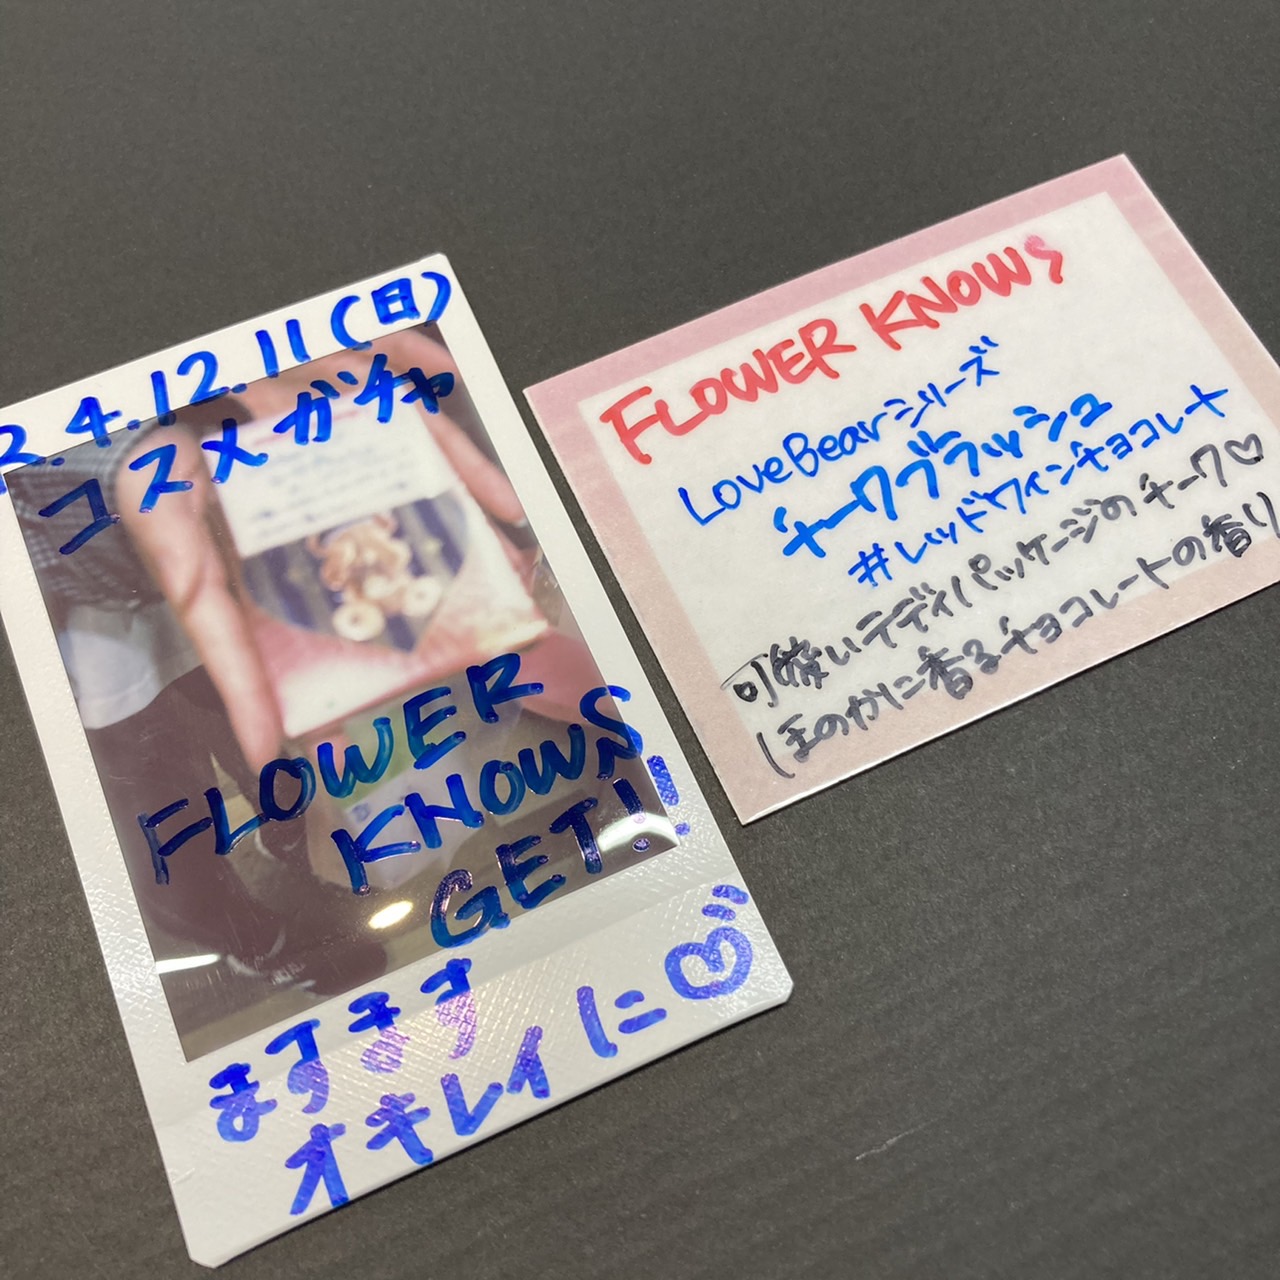 R.4.12.11(日)
コスメガチャ
FLOWER
KNOWS
GET!!
ますます
オキレイに♡
FLOWER KNOWS
LoveBearシリーズ
チークブラッシュ
#レッドワインチョコレート
可愛いテディパッケージのチーク♡
ほのかに香るチョコレートの香り